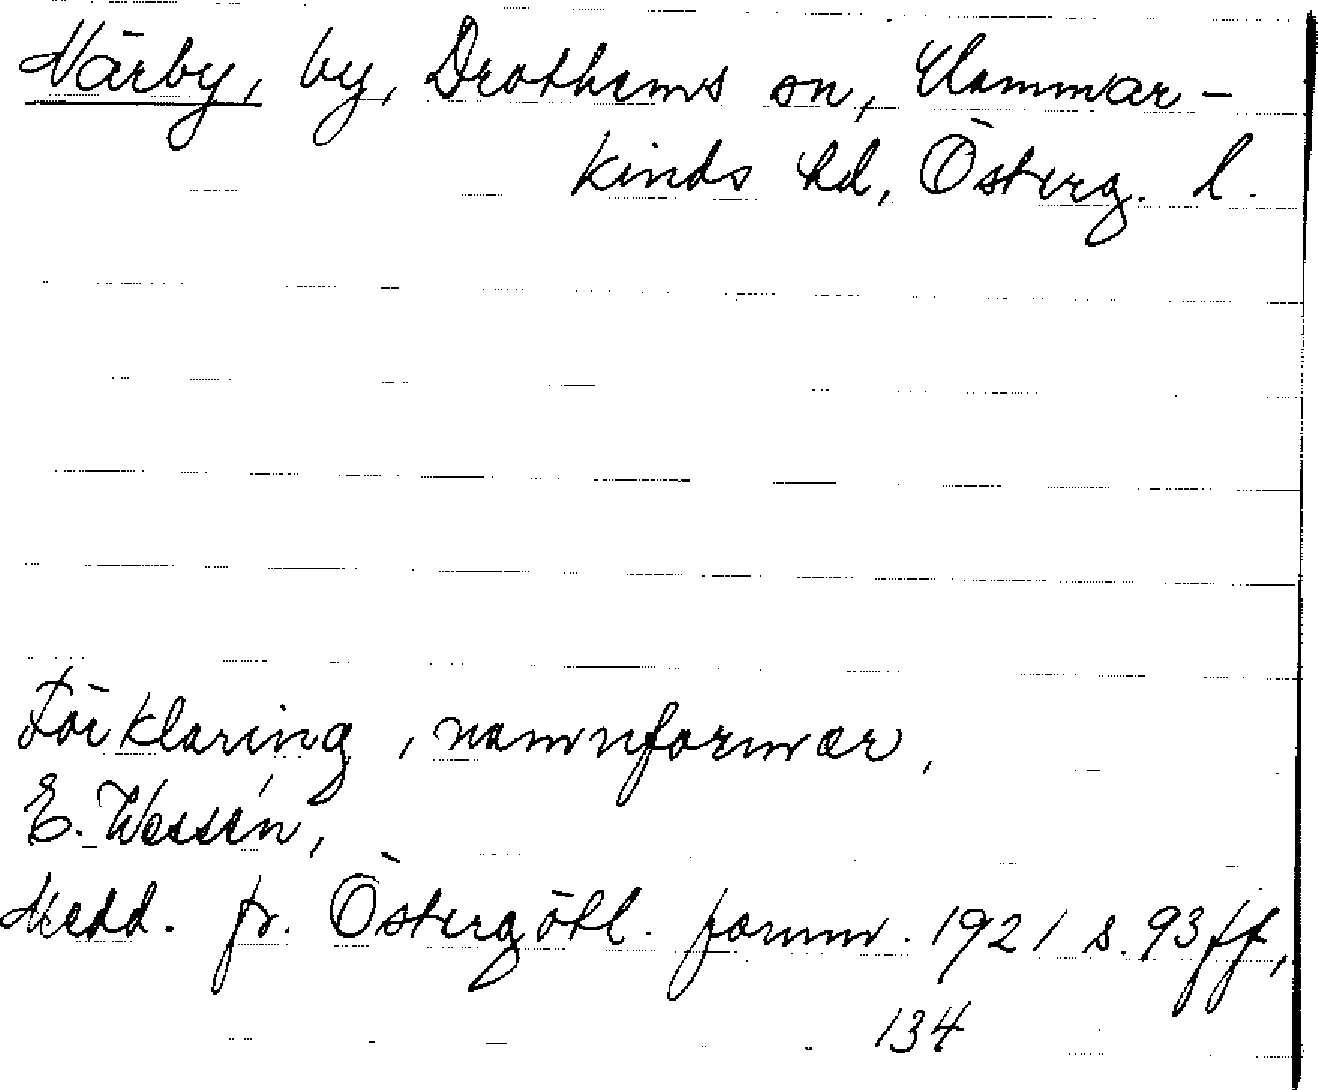 Närby, by, Drothems sn, Hammar-
kinds hd, Österg. l.
Förklaring, namnformer,
E. Wessén,
Medd. fr. Östergötl. fornm. 1921 s. 93 ff,
134